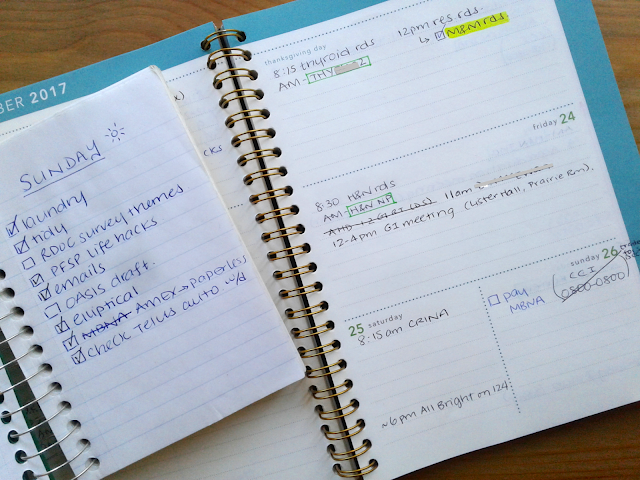 BER 2017
SUNDAY
laundry
tidy
RDOC survey themes
PFSP life hacks
emails
OASIS draft.
elliptical
MBNA AMEX → paperless
check Telus auto w/d
CKS
thanksgiving day
8:15 thyroid rds
AM - THY 2
12pm res rds.
↳ M&M rds
friday 24
8:30 H&N rds
AM - H&N NP
11am
12-4pm GI meeting (Lister Hall, Prairie Rm).
25 saturday
8:15am CRINA
~6pm All Bright on 124
sunday 26
CCI
(0800-0800)
pay
MBNA